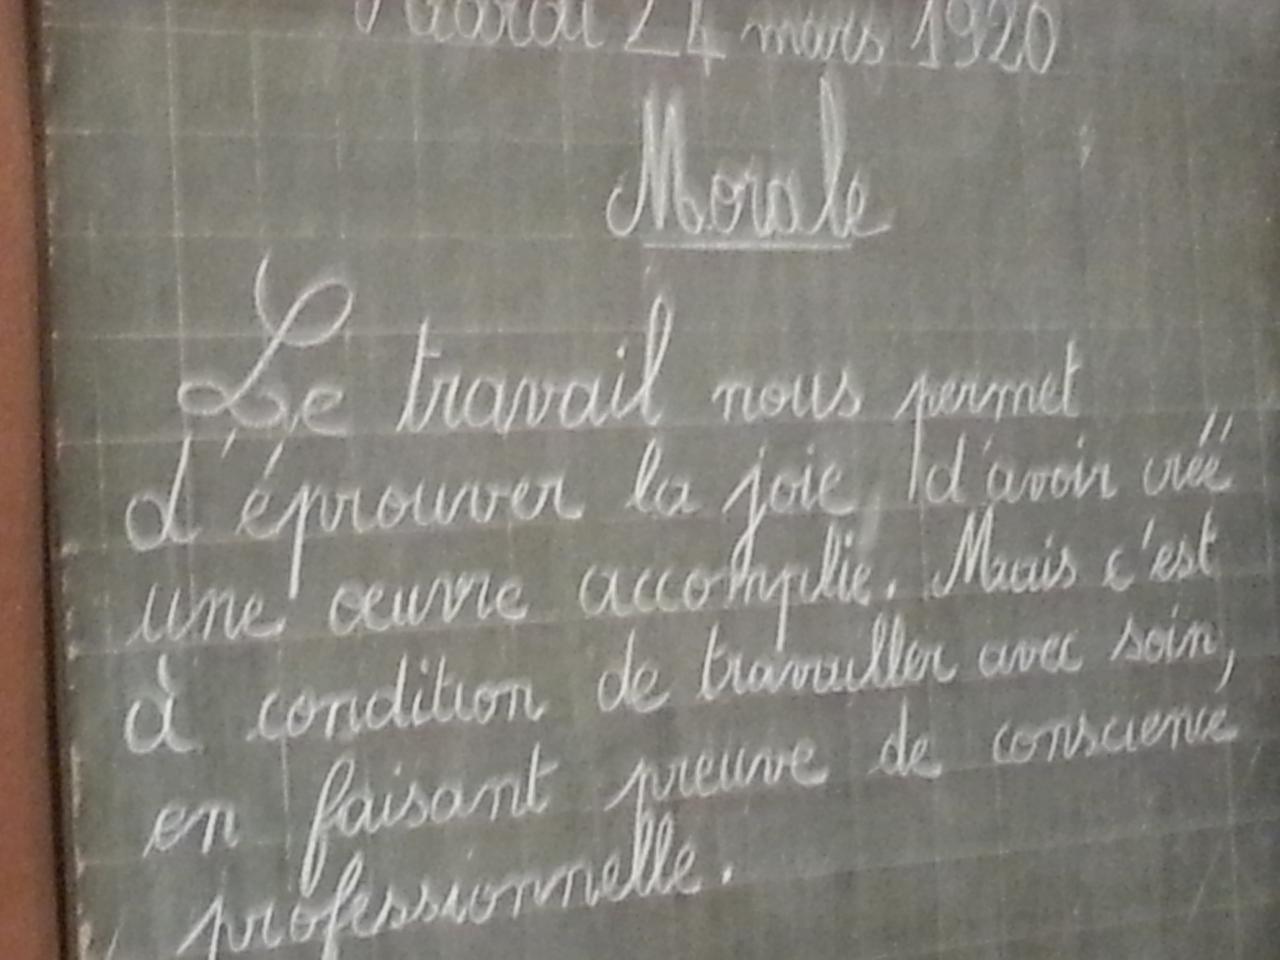 Mardi 24 mars 1920
Morale
Le travail nous permet
d'éprouver la joie d'avoir créé
une œuvre accomplie. Mais c'est
à condition de travailler avec soin,
en faisant preuve de conscience
professionnelle.